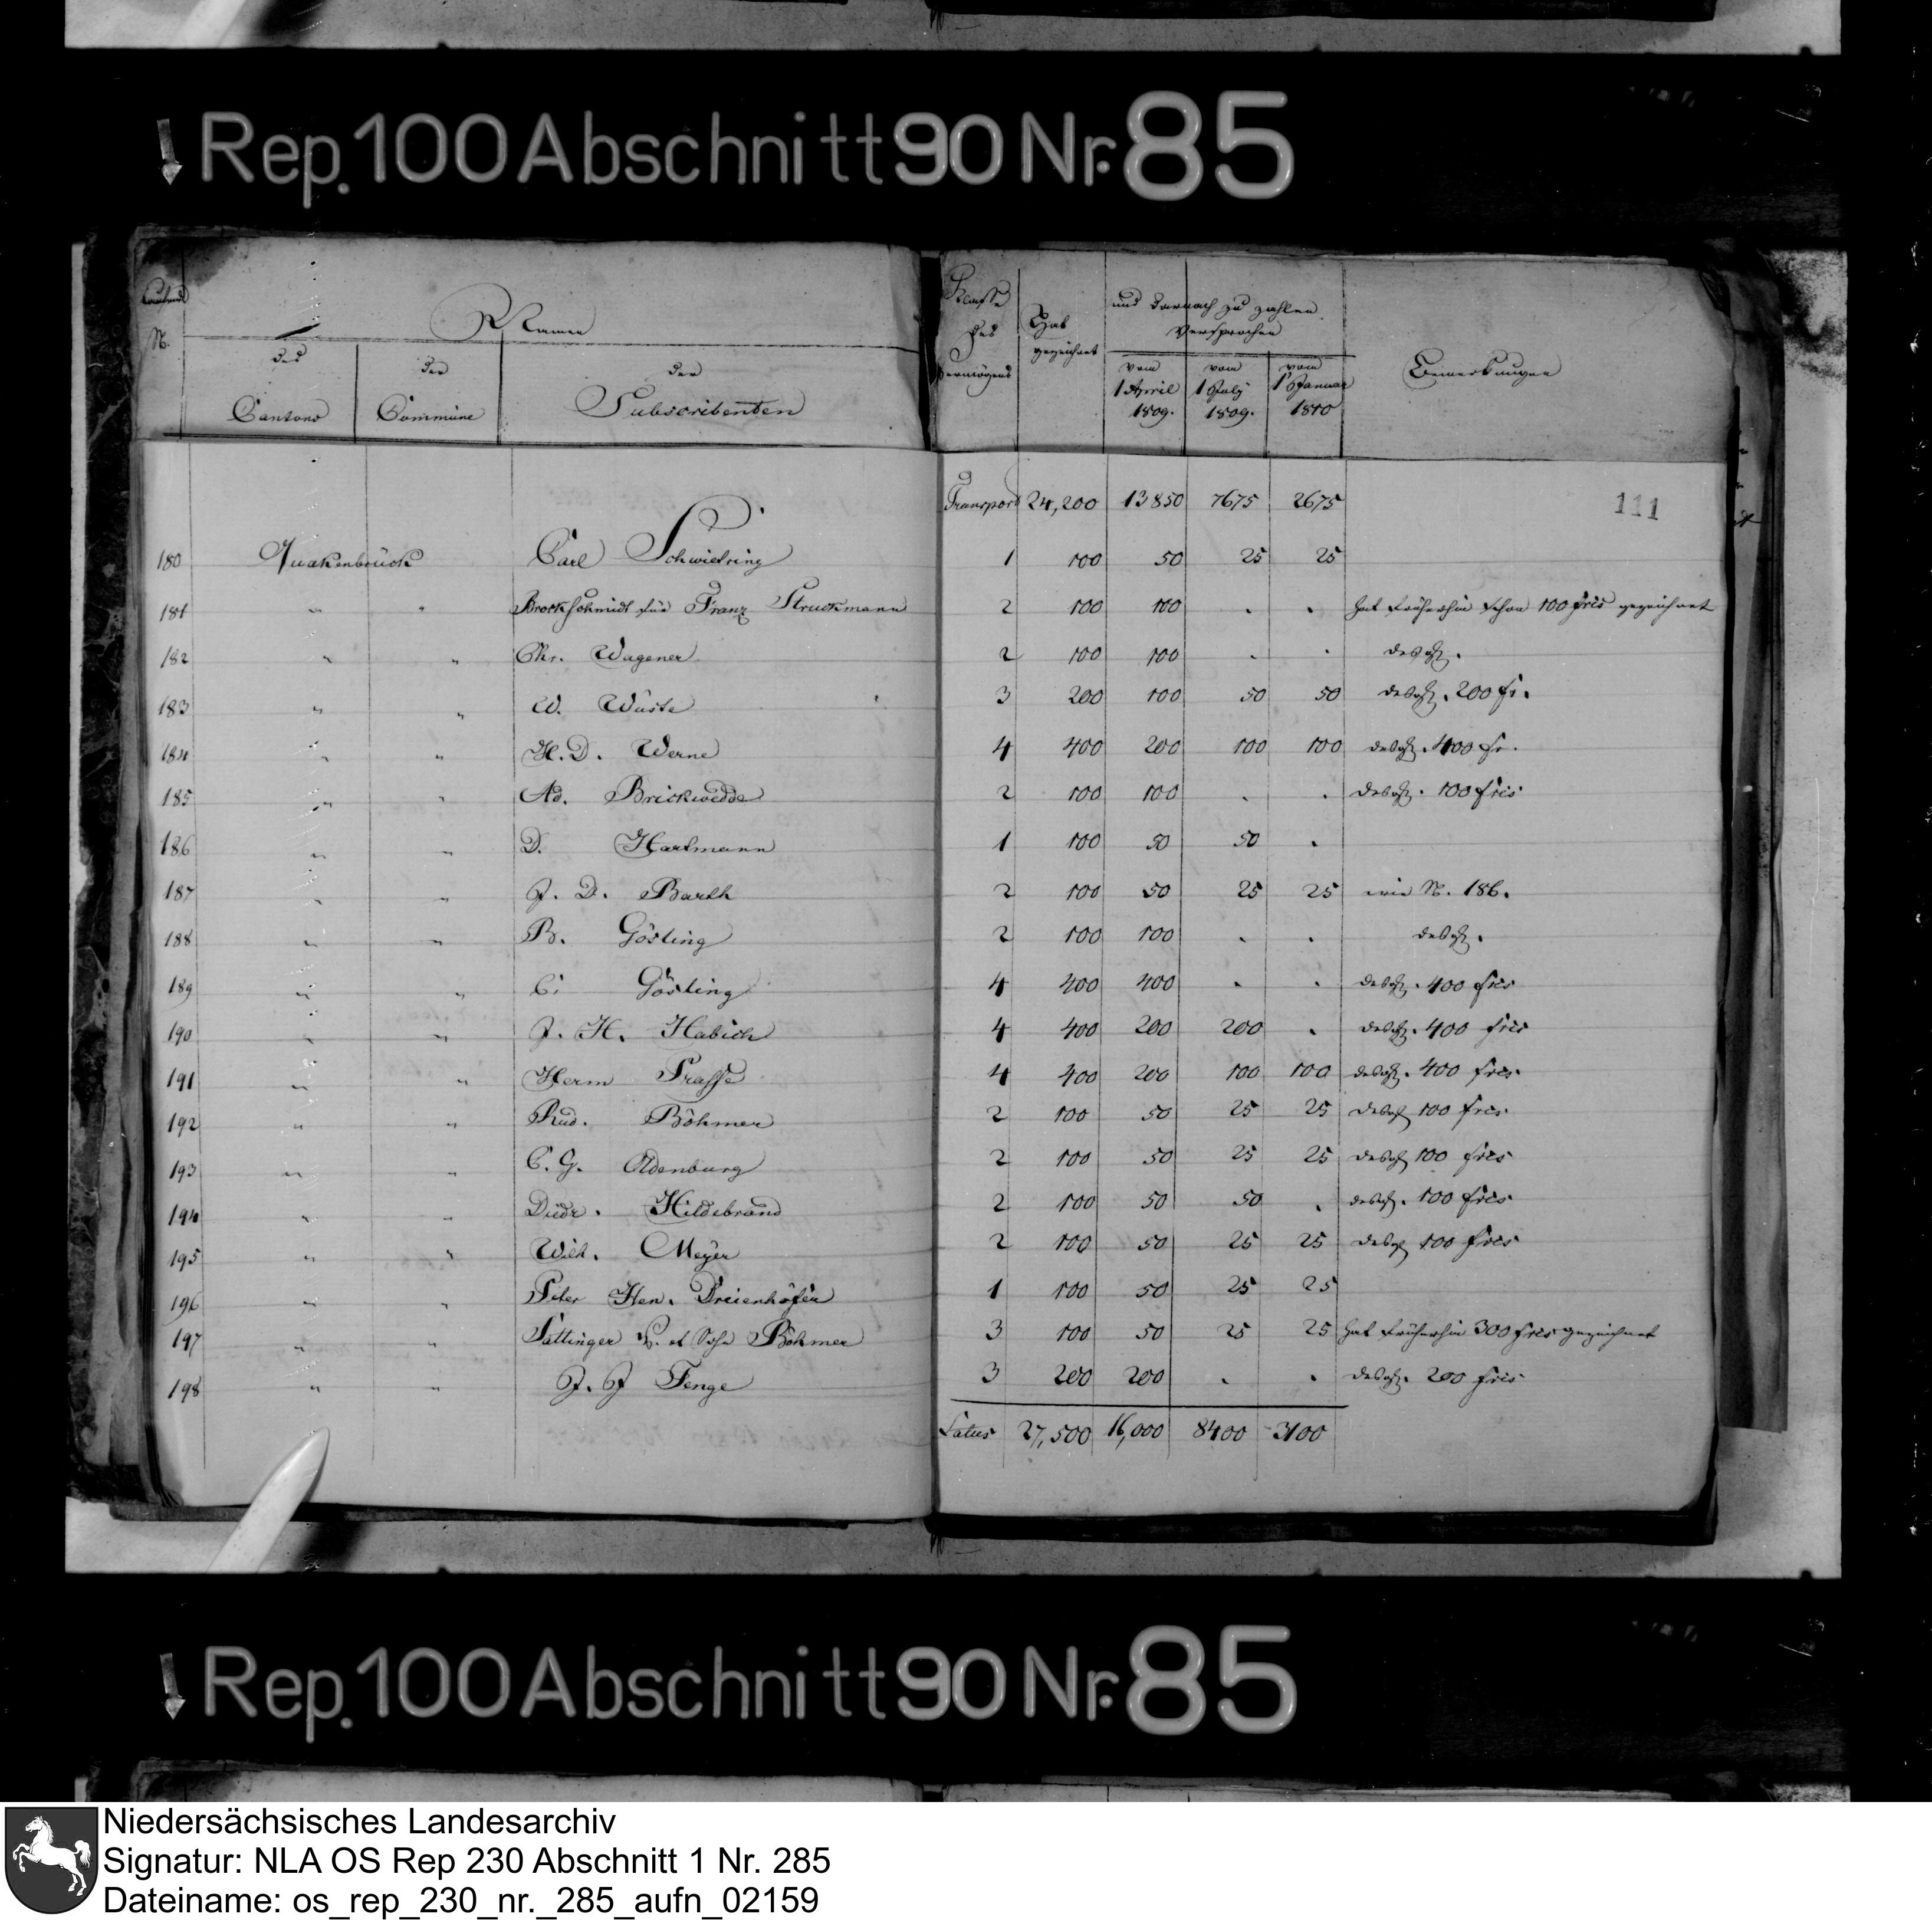 Rep. 100 Abschnitt 90 Nr. 85
Laufende N. Namen Klasse des Vermögens Hat gezeichnet und darnach zu zahlen versprochen Bemerkungen
des Cantons der Commüne der Subscribenten vom 1 April 1809. vom 1 July 1809. vom 1 Januar 1810
Transport 24,200 13850 7675 2675
111
180 Quakenbrück Carl Schwietring 1 100 50 25 25
181 " " Brockschmidt für Franz Struckmann 2 100 100 . . hat früherhin schon 100 frcs gezeichnet
182 " " Chr. Wagener 2 100 100 . . desgl.
183 " " W. Wüste 3 200 100 50 50 desgl. 200 fr.
184 " " H. D. Werne 4 400 200 100 100 desgl. 400 fr.
185 " " Ad. Brickwedde 2 100 100 . . desgl. 100 frcs
186 " " D. Hartmann 1 100 50 50 .
187 " " J. D. Barth 2 100 50 25 25 wie N. 186.
188 " " B. Gösling 2 100 100 . . desgl.
189 " " C. Gösling 4 400 400 . . desgl. 400 frcs
190 " " J. H. Habich 4 400 200 200 . desgl. 400 frcs
191 " " Herm Prasse 4 400 200 100 100 desgl. 400 frcs.
192 " " Rud. Böhmer 2 100 50 25 25 desgl 100 frcs.
193 " " C. G. Oldenburg 2 100 50 25 25 desgl 100 frcs
194 " " Diedr. Hildebrand 2 100 50 50 . desgl. 100 frcs
195 " " Wilh. Meÿer 2 100 50 25 25 desgl 100 frcs
196 " " Peter Hen. Dreienhöfer 1 100 50 25 25
197 " " Sattinger et Böhmer 3 100 50 25 25 hat früherhin 300 frcs gezeichnet
198 " " J. J Fenge 3 200 200 . . desgl. 200 frcs
Latus 27,500 16,000 8400 3100
Rep. 100 Abschnitt 90 Nr. 85
Niedersächsisches Landesarchiv
Signatur: NLA OS Rep 230 Abschnitt 1 Nr. 285
Dateiname: os_rep_230_nr._285_aufn_02159